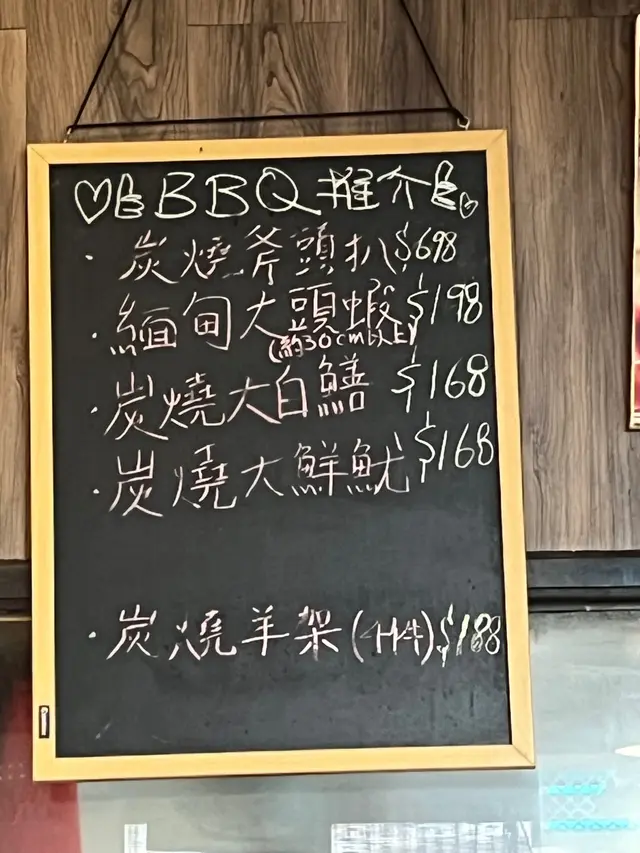 BBQ推介
· 炭燒斧頭扒 $698
· 緬甸大頭蝦 $198
(約30cm以上)
· 炭燒大白鱔 $168
· 炭燒大鮮魷 $168
· 炭燒羊架(4件) $188